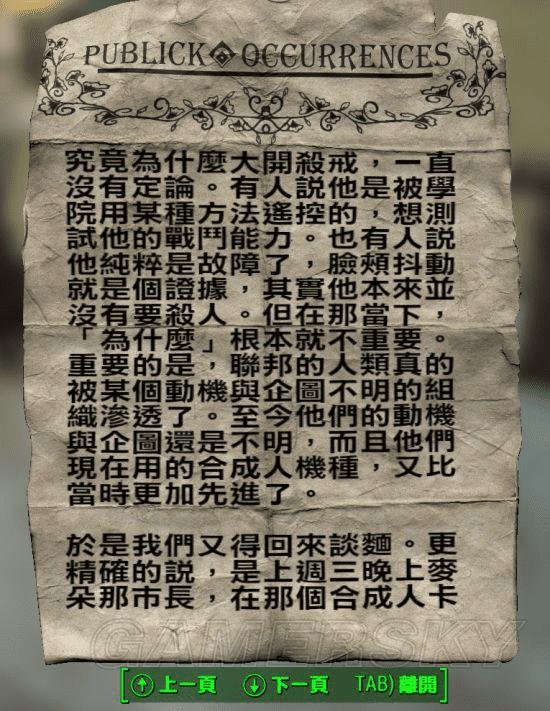 PUBLICK OCCURRENCES
究竟為什麼大開殺戒，一直
沒有定論。有人說他是被學
院用某種方法遙控的，想測
試他的戰鬥能力。也有人說
他純粹是故障了，臉頰抖動
就是個證據，其實他本來並
沒有要殺人。但在那當下，
「為什麼」根本就不重要。
重要的是，聯邦的人類真的
被某個動機與企圖不明的組
織滲透了。至今他們的動機
與企圖還是不明，而且他們
現在用的合成人機種，又比
當時更加先進了。
於是我們又得回來談麵。更
精確的說，是上週三晚上麥
朵那市長，在那個合成人卡
GAMERSKY
上一頁 下一頁 TAB) 離開